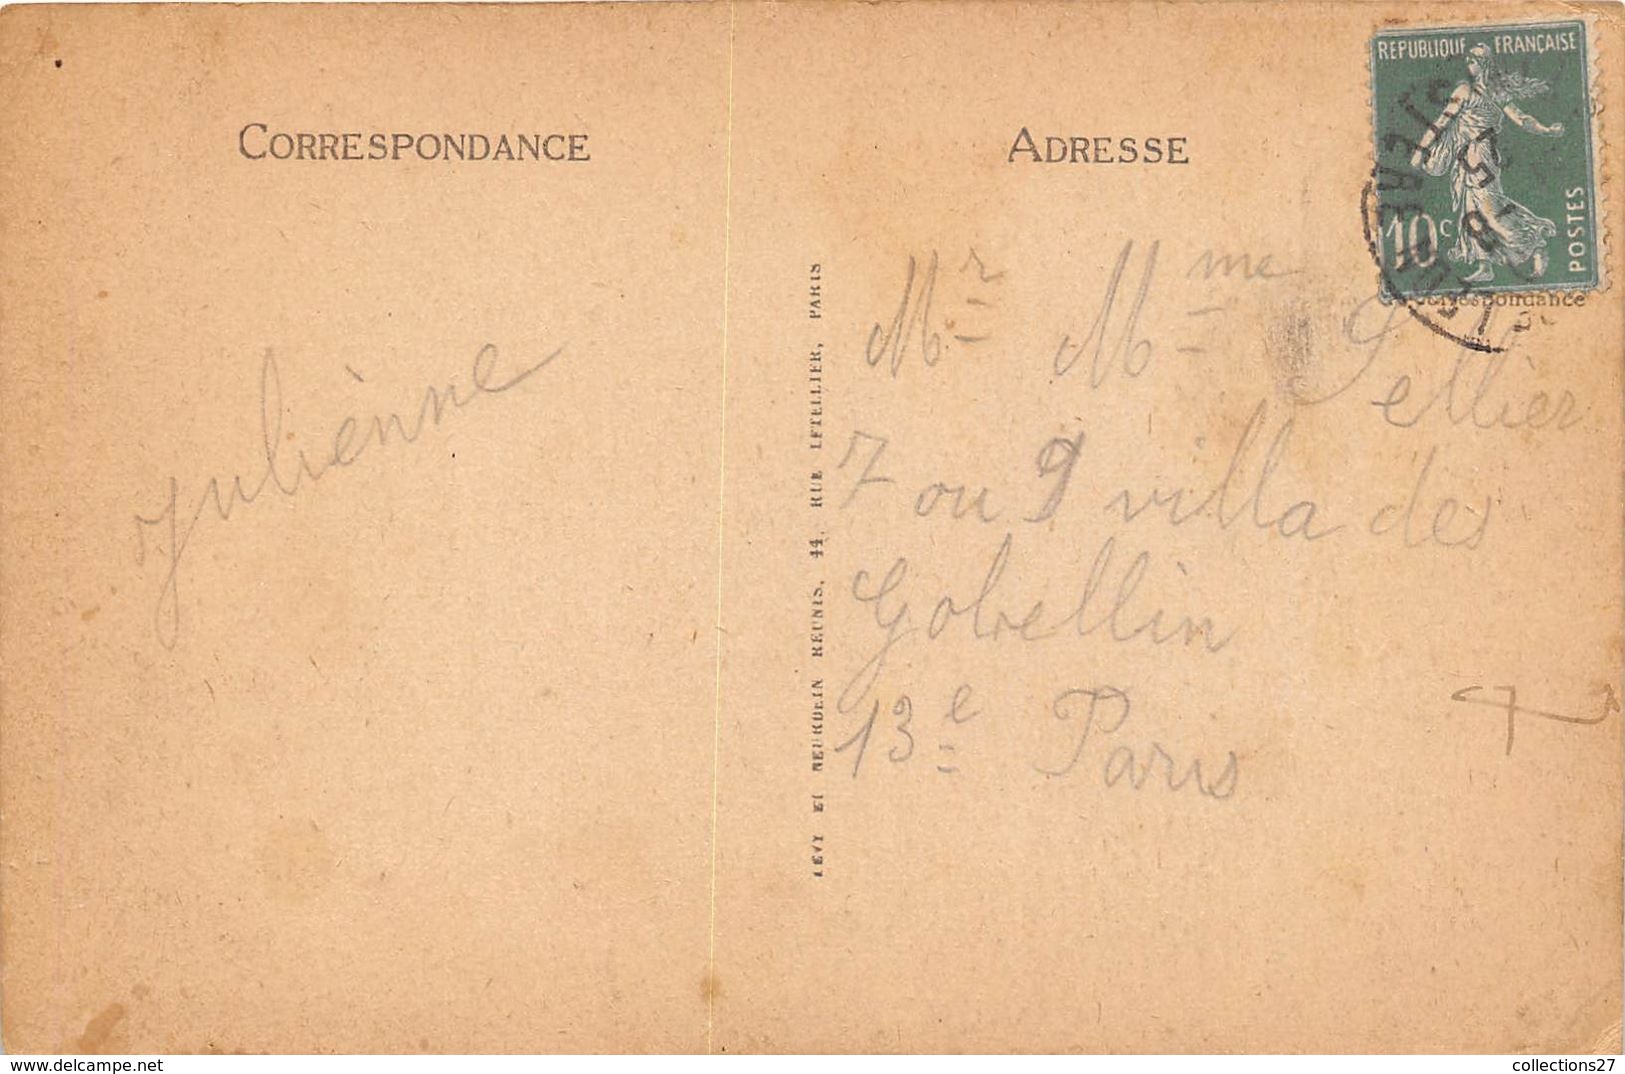 CORRESPONDANCE
ADRESSE
REPUBLIQUE FRANÇAISE
10c
POSTES
Correspondance
Julienne
LEVY ET NEURDEIN REUNIS, 44, RUE LETELLIER, PARIS
Mr Mme Pellier
7 ou 9 villa des
Gobellin
13e Paris
https://www.delcampe.net
collections27